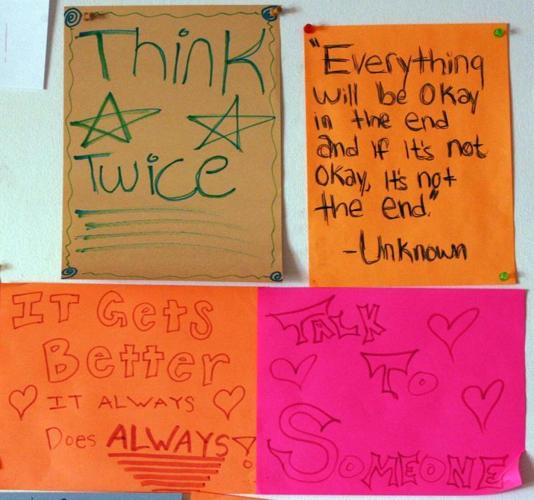 Think
Twice
"Everything
will be Okay
in the end
and if it's not
Okay, it's not
the end."
-Unknown
IT Gets
Better
IT ALWAYS
Does ALWAYS!
TALK
To
SOMEONE